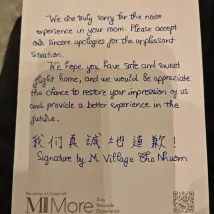 We are truly sorry for the noise
experience in your room. Please accept
our sincere apologies for the unpleasant
situation.
We hope you have safe and sweet
flight home, and we would be appreciate
the chance to restore your impression of us
and provide a better experience in the
future.
我们真誠地道歉!
Signature by M Village Tho Nhuom
Become a Citizen of
M More
Stay
Experience